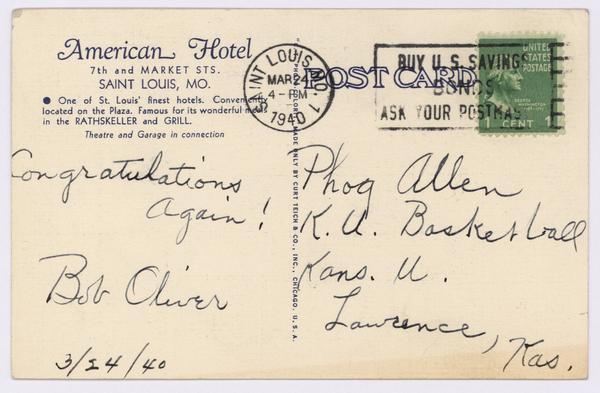 American Hotel
7th and MARKET STS.
SAINT LOUIS, MO.
● One of St. Louis' finest hotels. Conveniently
located on the Plaza. Famous for its wonderful meals
in the RATHSKELLER and GRILL.
Theatre and Garage in connection
Congratulations
Again!
Bob Oliver
3/24/40
MADE ONLY BY CURT TEICH & CO., INC., CHICAGO, U.S.A.
SAINT LOUIS, MO. 1
MAR 24
4-PM
1940
POST CARD
BUY U.S. SAVINGS
BONDS
ASK YOUR POSTMASTER
UNITED
STATES
POSTAGE
GEORGE
WASHINGTON
1 CENT
Phog Allen
K.U. Basketball
Kans. U.
Lawrence,
Kas.